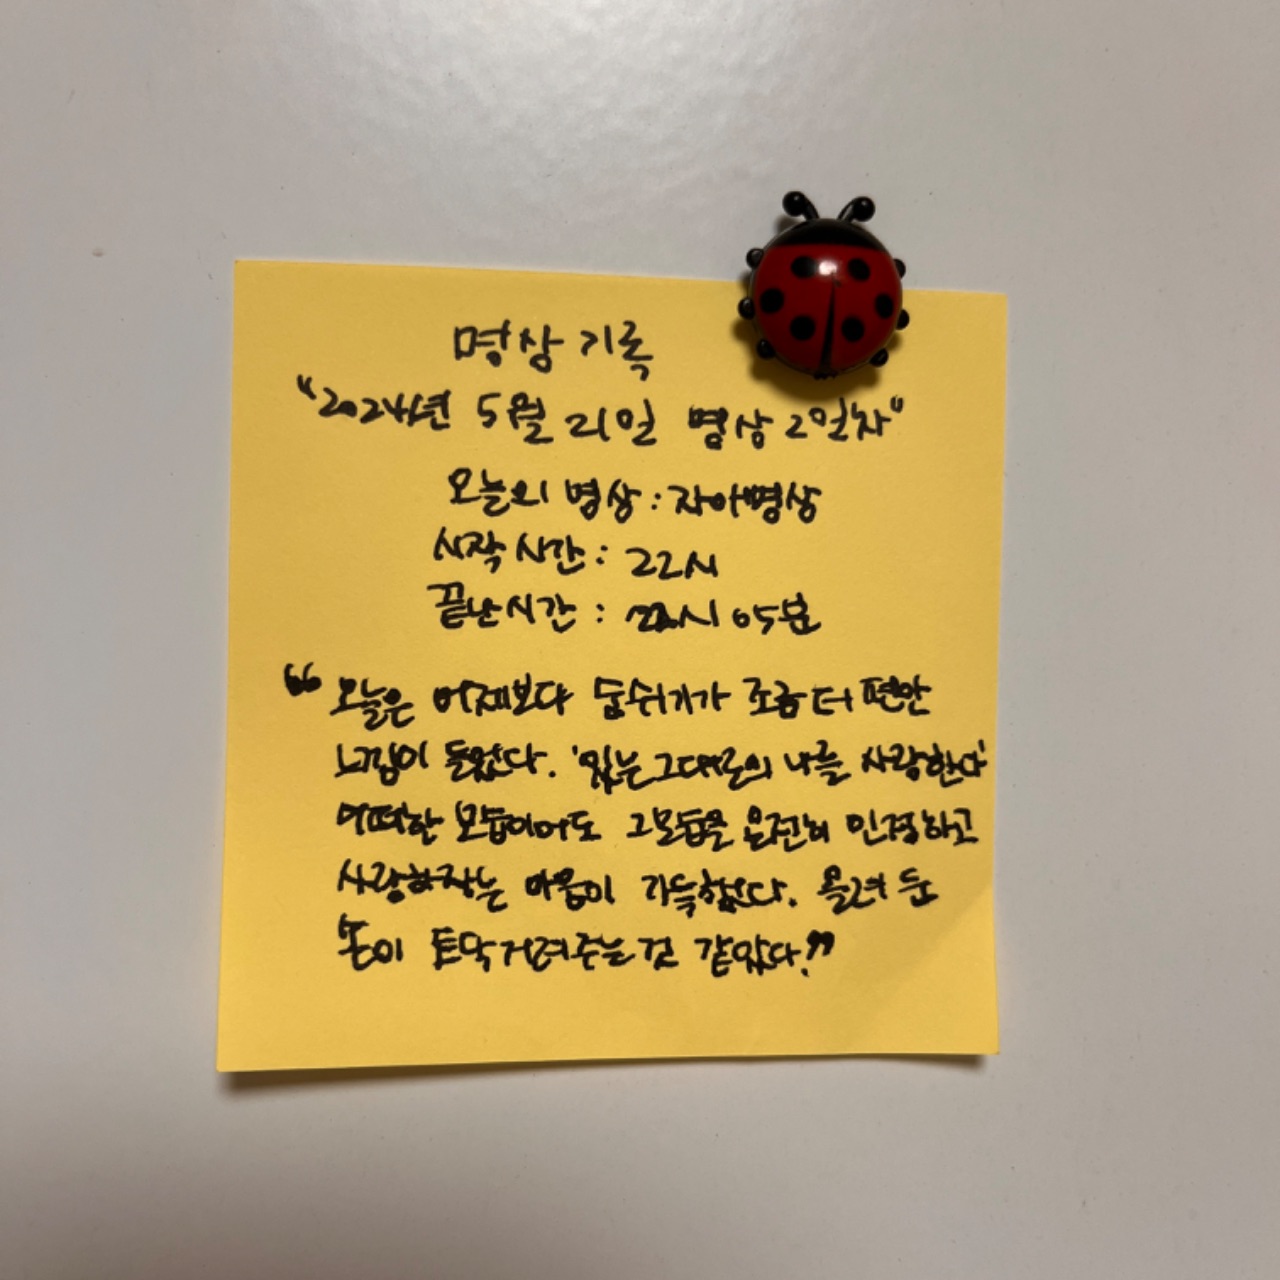 명상 기록
"2024년 5월 21일 명상 2일차"
오늘의 명상 : 자아명상
시작 시간 : 22시
끝난시간 : 22시 05분
"오늘은 어제보다 숨쉬기가 조금 더 편안
느낌이 들었다. '있는 그대로의 나를 사랑한다'
어떠한 모습이어도 그 모습을 온전히 인정하고
사랑하자는 마음이 가득했다. 올려 둔
손이 토닥거려주는 것 같았다."